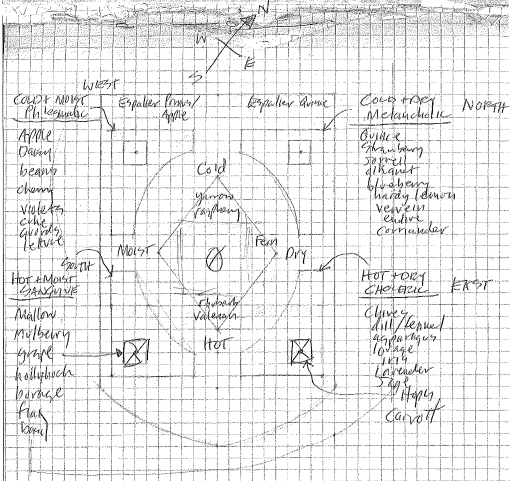 N
W
E
S
WEST
COLD + MOIST
Phlegmatic
Apple
Daisy
beans
cherry
violets
gourds
lettuce
Espalier Prunus/
Apple
Espalier Quince
COLD + DRY
Melancholic
NORTH
Quince
Strawberry
sorrell
alkanet
blueberry
hardy lemon
vervein
endive
coriander
Cold
yarrow
raspberry
MOIST
Fern
Dry
rhubarb
valerian
HOT
SOUTH
HOT + MOIST
SANGUINE
Mallow
Mulberry
grape
hollyhock
borage
flax
basil
HOT + DRY
CHOLERIC
EAST
Chives
dill/fennel
asparagus
lovage
iris
lavender
Sage
Hops
Carrott